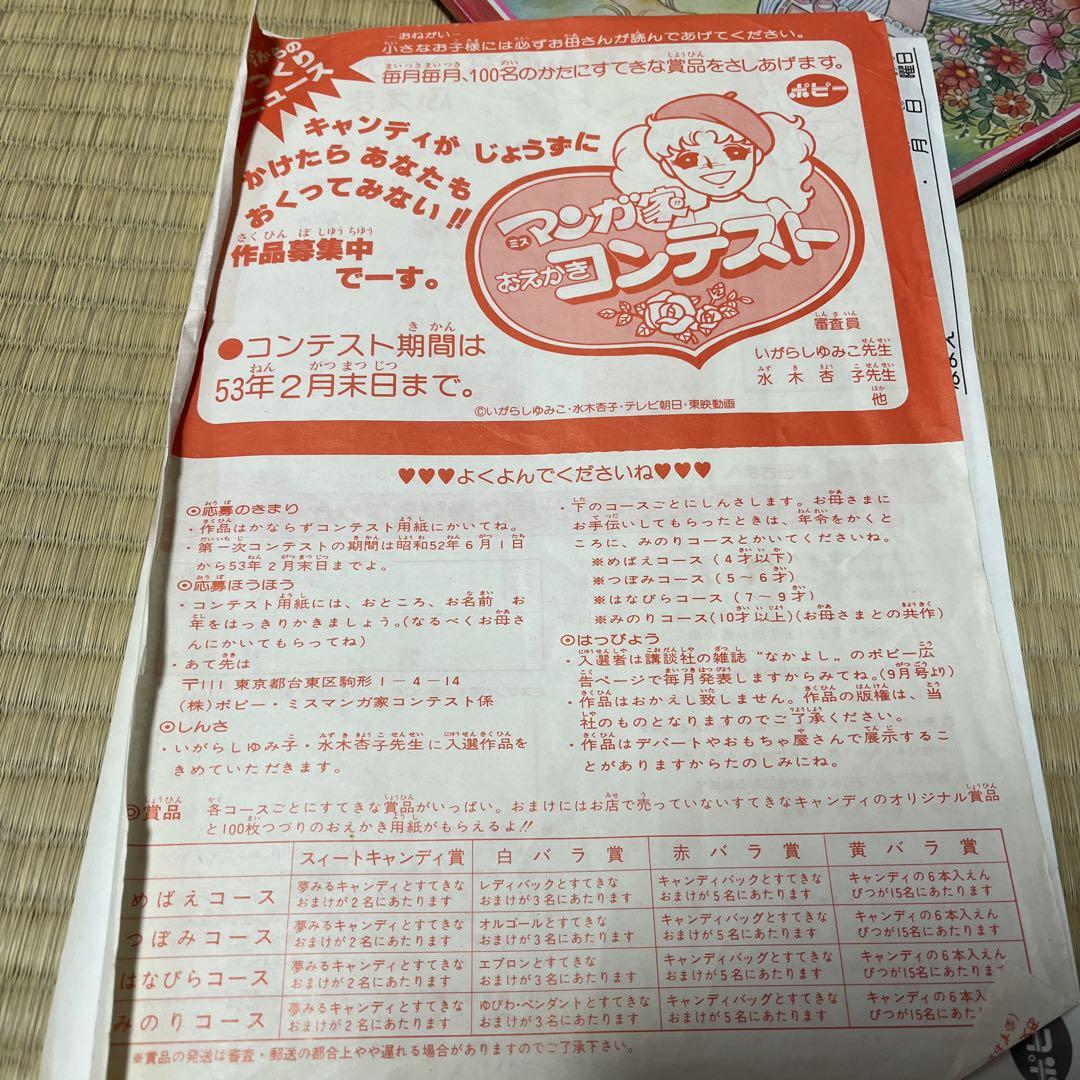 ―おねがい―
小さなお子様には必ずお母さんが読んであげてください。
毎月毎月、100名のかたにすてきな賞品をさしあげます。
ポピー
キャンディが じょうずに
かけたら あなたも
おくってみない!!
作品募集中
でーす。
ミス マンガ家
おえかき コンテスト
●コンテスト期間は
53年2月末日まで。
審査員
いがらしゆみこ先生
水木杏子先生
他
©いがらしゆみこ・水木杏子・テレビ朝日・東映動画
♥♥♥よくよんでくださいね♥♥♥
◎応募のきまり
・作品はかならずコンテスト用紙にかいてね。
・第一次コンテストの期間は昭和52年6月1日
から53年2月末日までよ。
◎応募ほうほう
・コンテスト用紙には、おところ、お名前 お
年をはっきりかきましょう。(なるべくお母さ
んにかいてもらってね)
・あて先は
〒111 東京都台東区駒形1-4-14
(株)ポピー・ミスマンガ家コンテスト係
◎しんさ
・いがらしゆみ子・水木杏子先生に入選作品を
きめていただきます。
・下のコースごとにしんさします。お母さまに
お手伝いしてもらったときは、年令をかくと
ころに、みのりコースとかいてくださいね。
※めばえコース(4才以下)
※つぼみコース(5〜6才)
※はなびらコース(7〜9才)
※みのりコース(10才以上)(お母さまとの共作)
◎はっぴよう
・入選者は講談社の雑誌“なかよし”のポピー広
告ページで毎月発表しますからみてね。(9月号より)
・作品はおかえし致しません。作品の版権は、当
社のものとなりますのでご了承ください。
・作品はデパートやおもちゃ屋さんで展示するこ
とがありますからたのしみにね。
◎賞品 各コースごとにすてきな賞品がいっぱい。おまけにはお店で売っていないすてきなキャンディのオリジナル賞品
と100枚つづりのおえかき用紙がもらえるよ!!
スィートキャンディ賞 白バラ賞 赤バラ賞 黄バラ賞
めばえコース 夢みるキャンディとすてきな レディバックとすてきな キャンディバックとすてきな キャンディの6本入えん
おまけが2名にあたります おまけが3名にあたります おまけが5名にあたります ぴつが15名にあたります
つぼみコース 夢みるキャンディとすてきな オルゴールとすてきな キャンディバッグとすてきな キャンディの6本入えん
おまけが2名にあたります おまけが3名にあたります おまけが5名にあたります ぴつが15名にあたります
はなびらコース 夢みるキャンディとすてきな エプロンとすてきな キャンディバッグとすてきな キャンディの6本入えん
おまけが2名にあたります おまけが3名にあたります おまけが5名にあたります ぴつが15名にあたります
みのりコース 夢みるキャンディとすてきな ゆびわ・ペンダントとすてきな キャンディバッグとすてきな キャンディの6本入
おまけが2名にあたります おまけが3名にあたります おまけが5名にあたります ぴつが15名にあた
※賞品の発送は審査・郵送の都合上やや遅れる場合がありますのでご了承下さい。
月 日 曜日